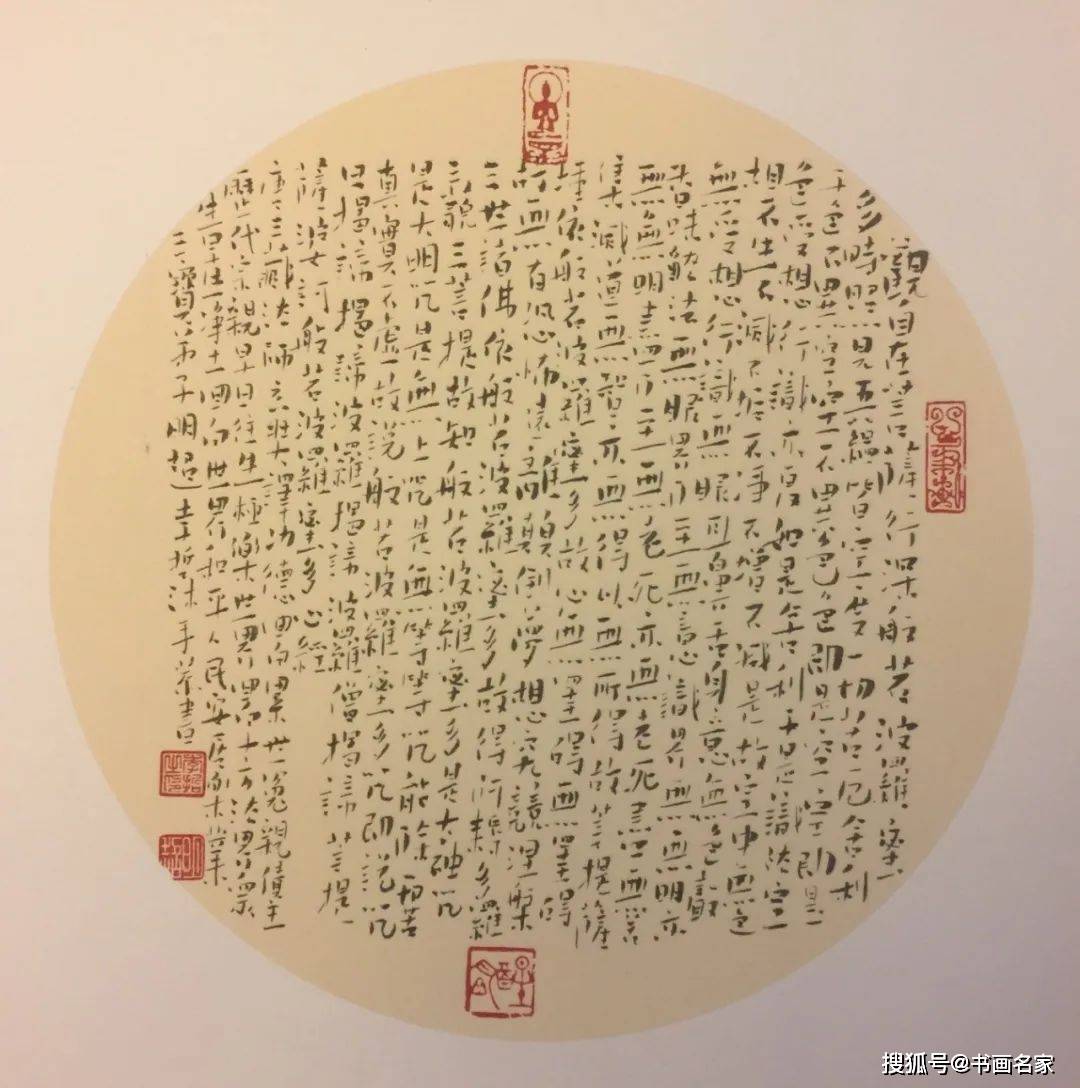 觀自在菩薩行深般若波羅蜜
多時照見五蘊皆空度一切苦厄舍利
子色不異空空不異色色即是空空即是
色受想行識亦復如是舍利子是諸法空
相不生不滅不垢不淨不增不減是故空中無色
無受想行識無眼耳鼻舌身意無色聲
香味觸法無眼界乃至無意識界無無明亦
無無明盡乃至無老死亦無老死盡無苦
集滅道無智亦無得以無所得故菩提薩
埵依般若波羅蜜多故心無罣礙無罣礙
故無有恐怖遠離顛倒夢想究竟涅槃
三世諸佛依般若波羅蜜多故得阿耨多羅
三藐三菩提故知般若波羅蜜多是大神咒
是大明咒是無上咒是無等等咒能除一切苦
真實不虛故說般若波羅蜜多咒即說咒
曰揭諦揭諦波羅揭諦波羅僧揭諦菩提
薩婆訶般若波羅蜜多心經
唐三藏法師玄奘譯功德回向累世冤親債主
歷代宗親早日往生極樂世界十方法界眾
生早生淨土回向世界和平人民安居樂業
三寶弟子明超李哲沐手恭書
李哲之印
搜狐号@书画名家